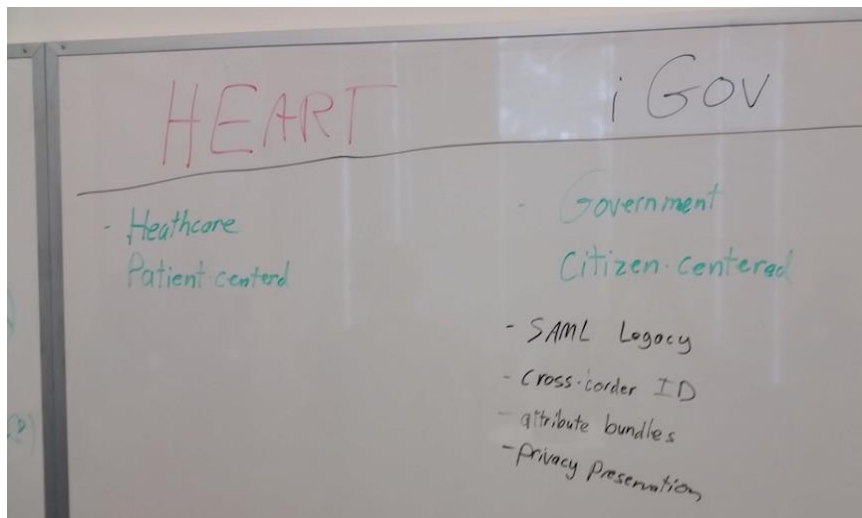 HEART
i GOV
- Heathcare
Patient-centerd
- Government
Citizen-centered
- SAML Legacy
- Cross-corder ID
- attribute bundles
- privacy preservation